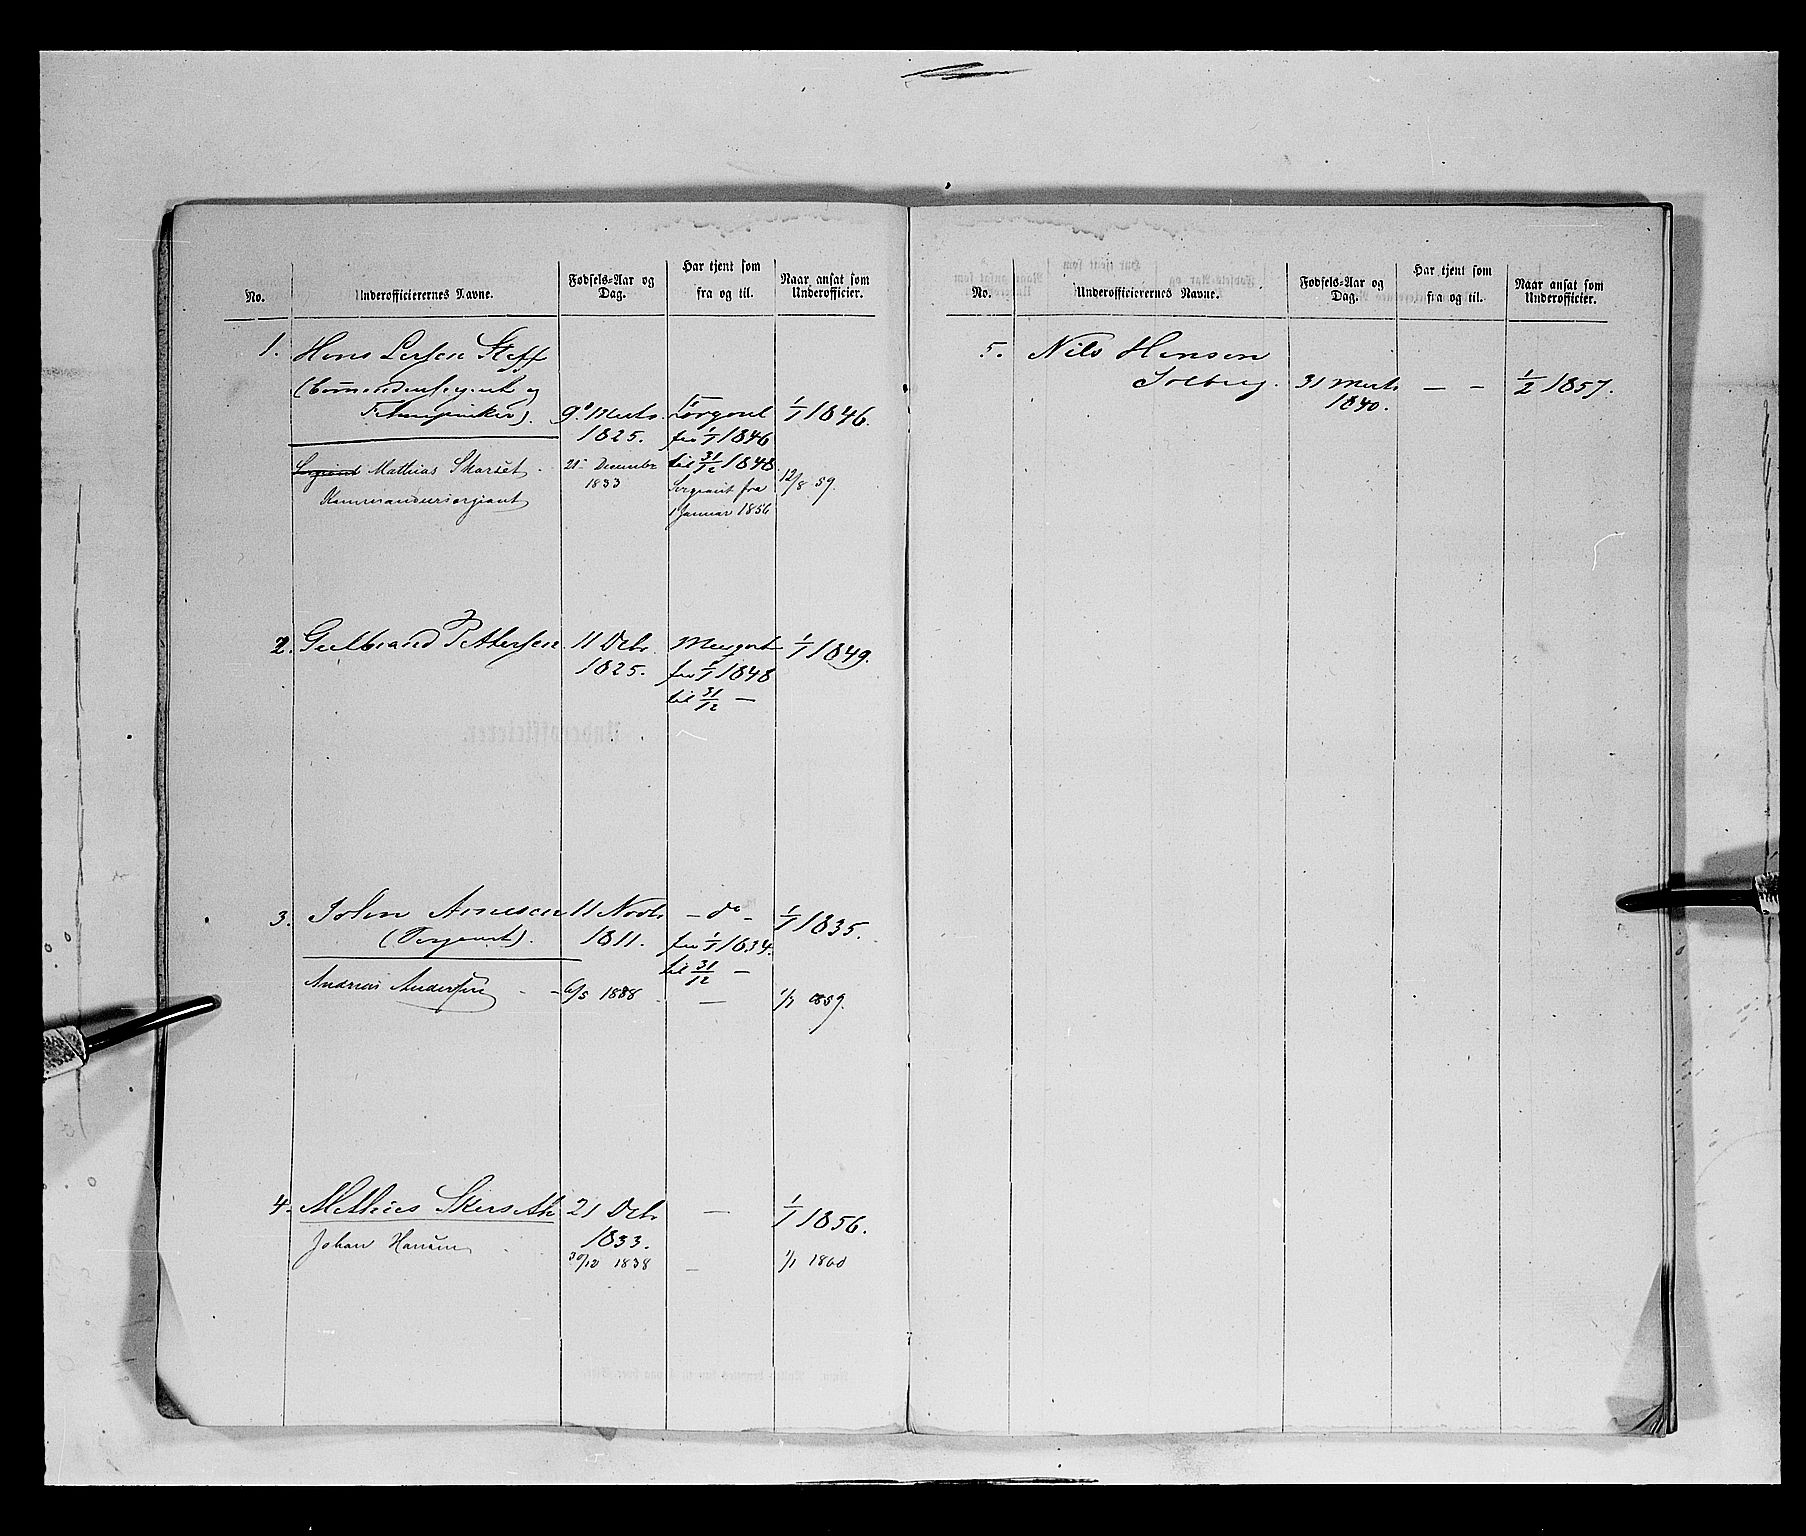 No.
Underofficierernes Navne.
Fødsels-Aar og
Dag.
Har tjent som
fra og til.
Naar ansat som
Underofficier.
1. Hans Larsen
9de Marts
1825.
fra 1/1 1846
til 31/12 1848.
1/1 1846.
Sergeant Mathias Skarset
Kommandersergeant
21 December
1833
Sergeant fra
1 Januar 1856
12/8 59.
2. Gulbrand Pettersen
11 Decbr
1825.
fra 1/1 1848
til 31/12 —
1/1 1849.
3. John Arnesen
(Sergeant).
11 Novbr
1811.
— do —
fra 1/1 1834.
til 31/12 —
1/1 1835.
Andreas Andersen
6/5 1838
—
1/1 1859.
4. Mathias Skarseth
21 Decbr
1833.
—
1/1 1856.
Johan Hansen
30/12 1838
—
1/1 1860
No.
Underofficierernes Navne.
Fødsels-Aar og
Dag.
Har tjent som
fra og til.
Naar ansat som
Underofficier.
5. Nils Hansen
Solberg.
31 Marts
1840.
— —
1/2 1857.